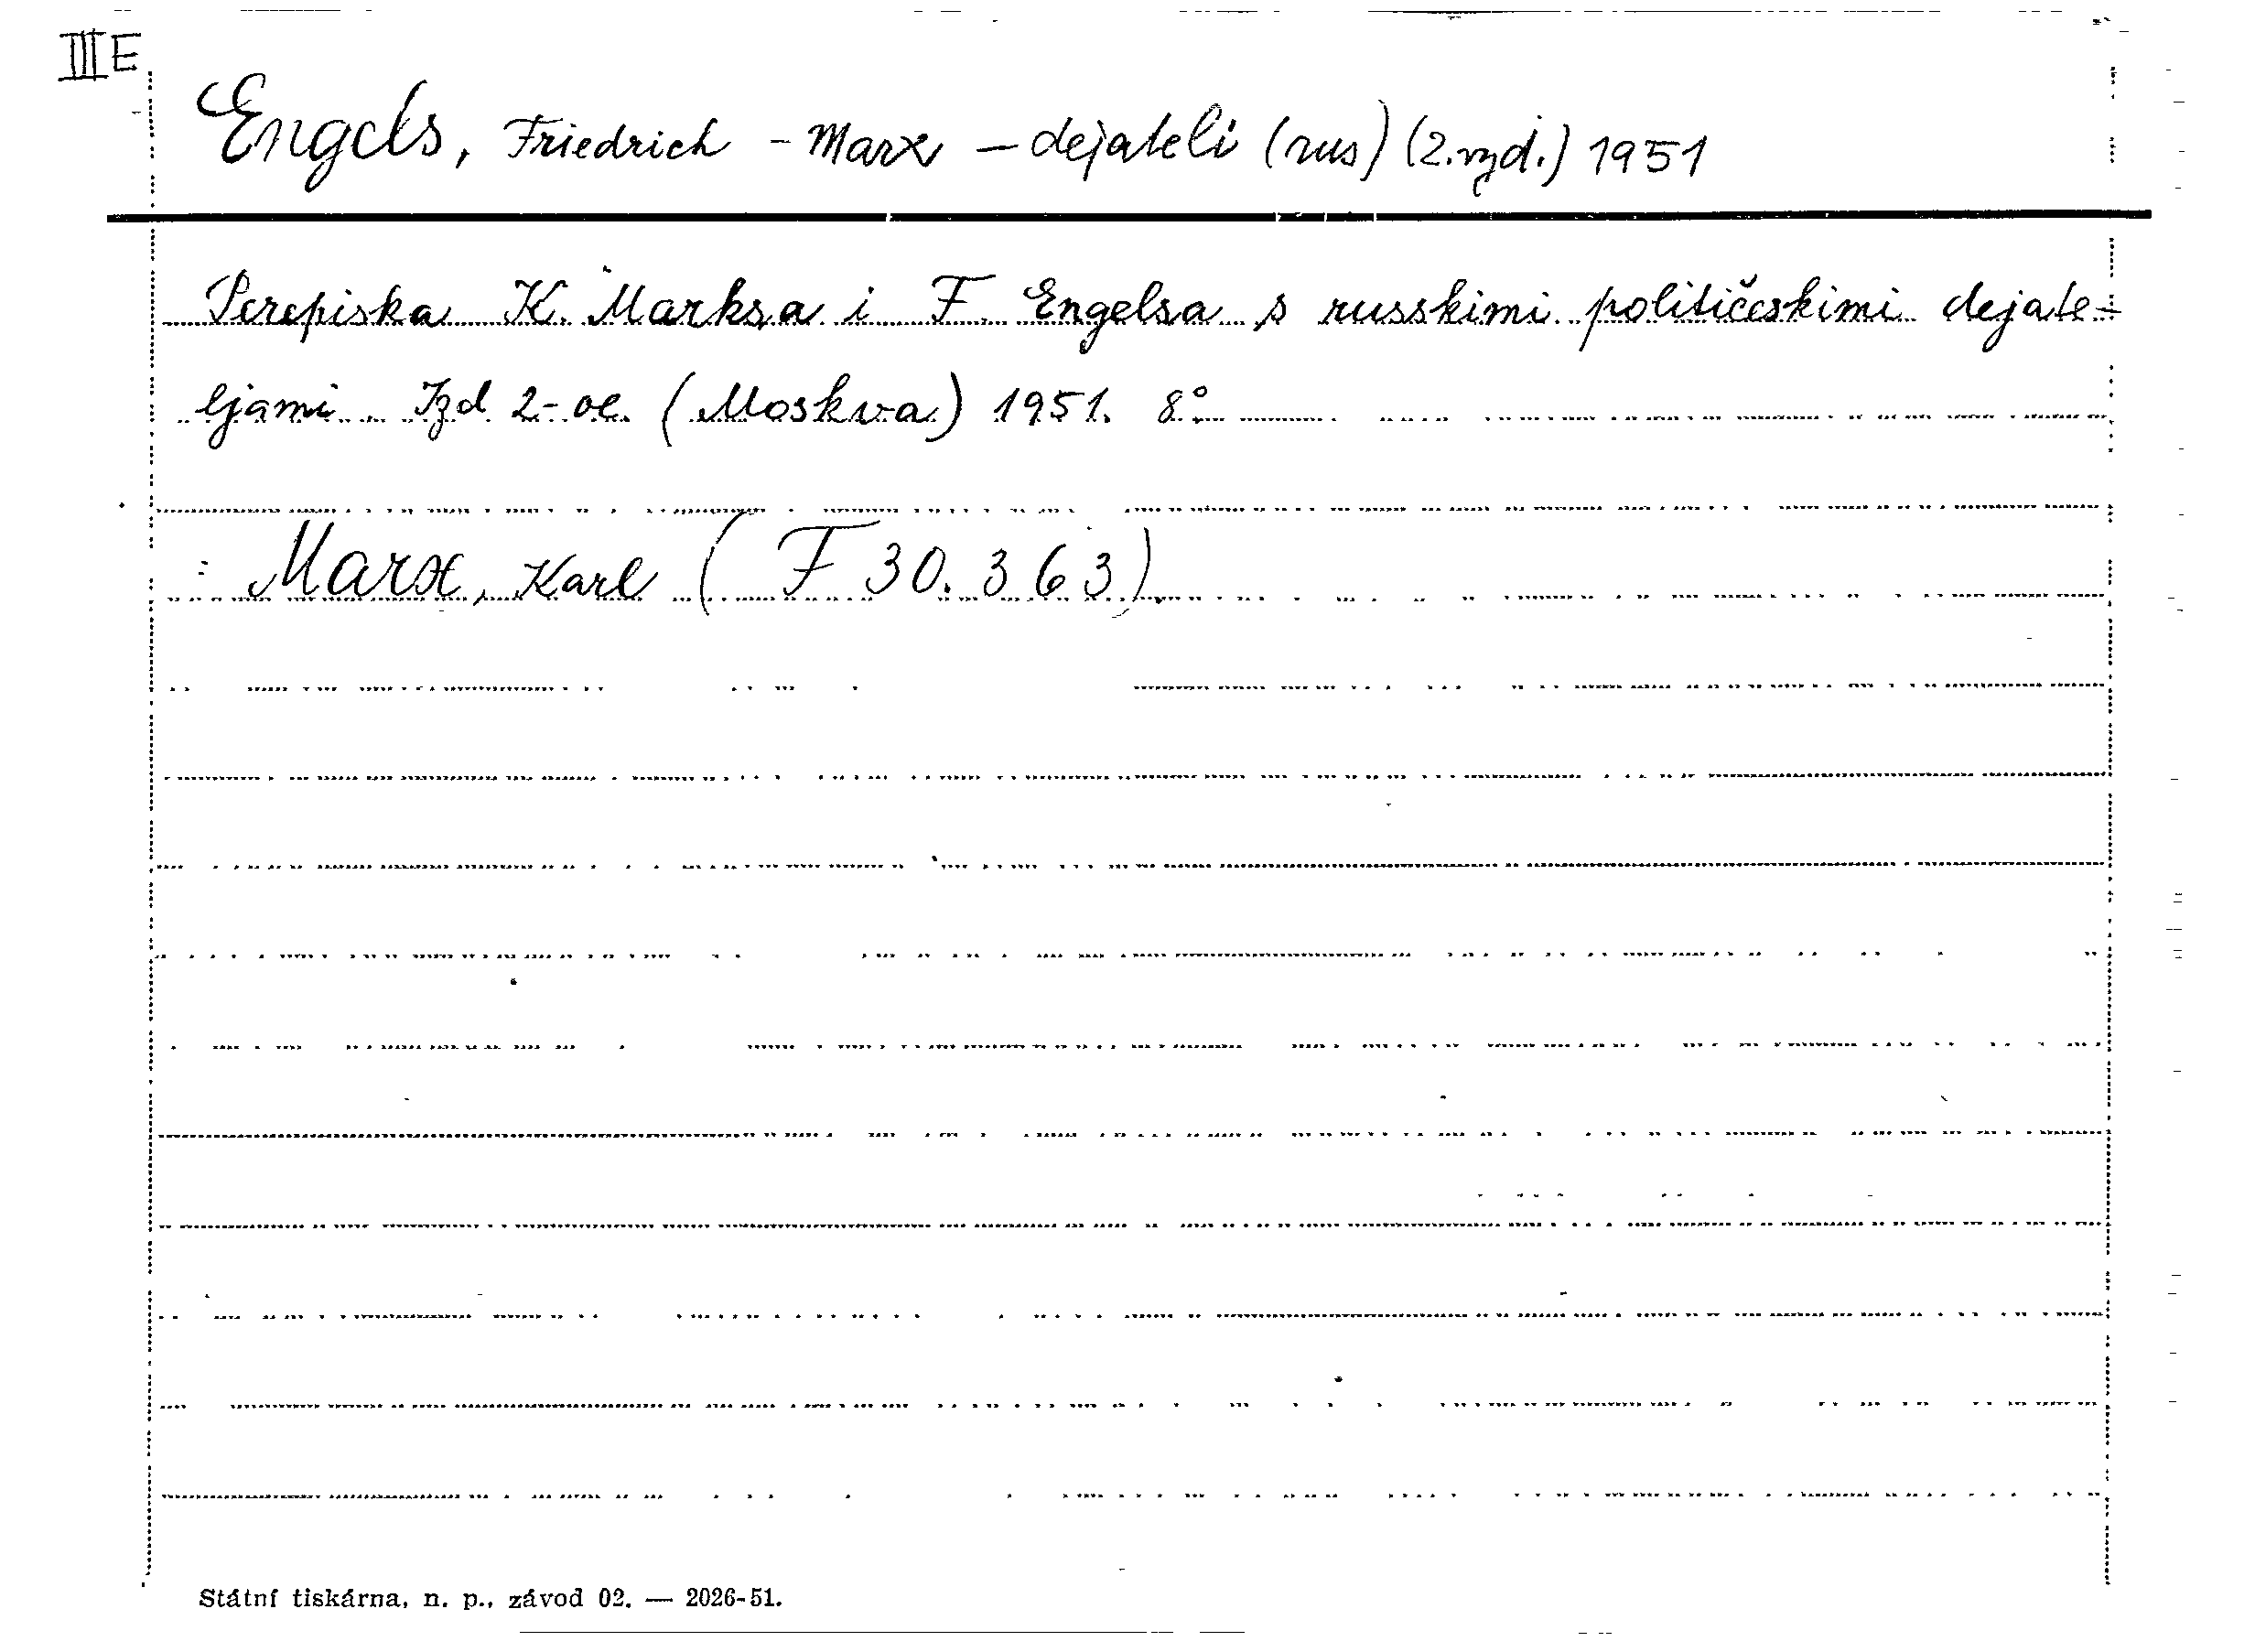 III E
Engels, Friedrich - Marx - dejateli (rus) (2.vyd.) 1951
Perepiska K. Marksa i F. Engelsa s russkimi političeskimi dejate-
ljami. Izd 2-oe. (Moskva) 1951. 8°
: Marx, Karl (F 30.363)
Státní tiskárna, n. p., závod 02. — 2026-51.